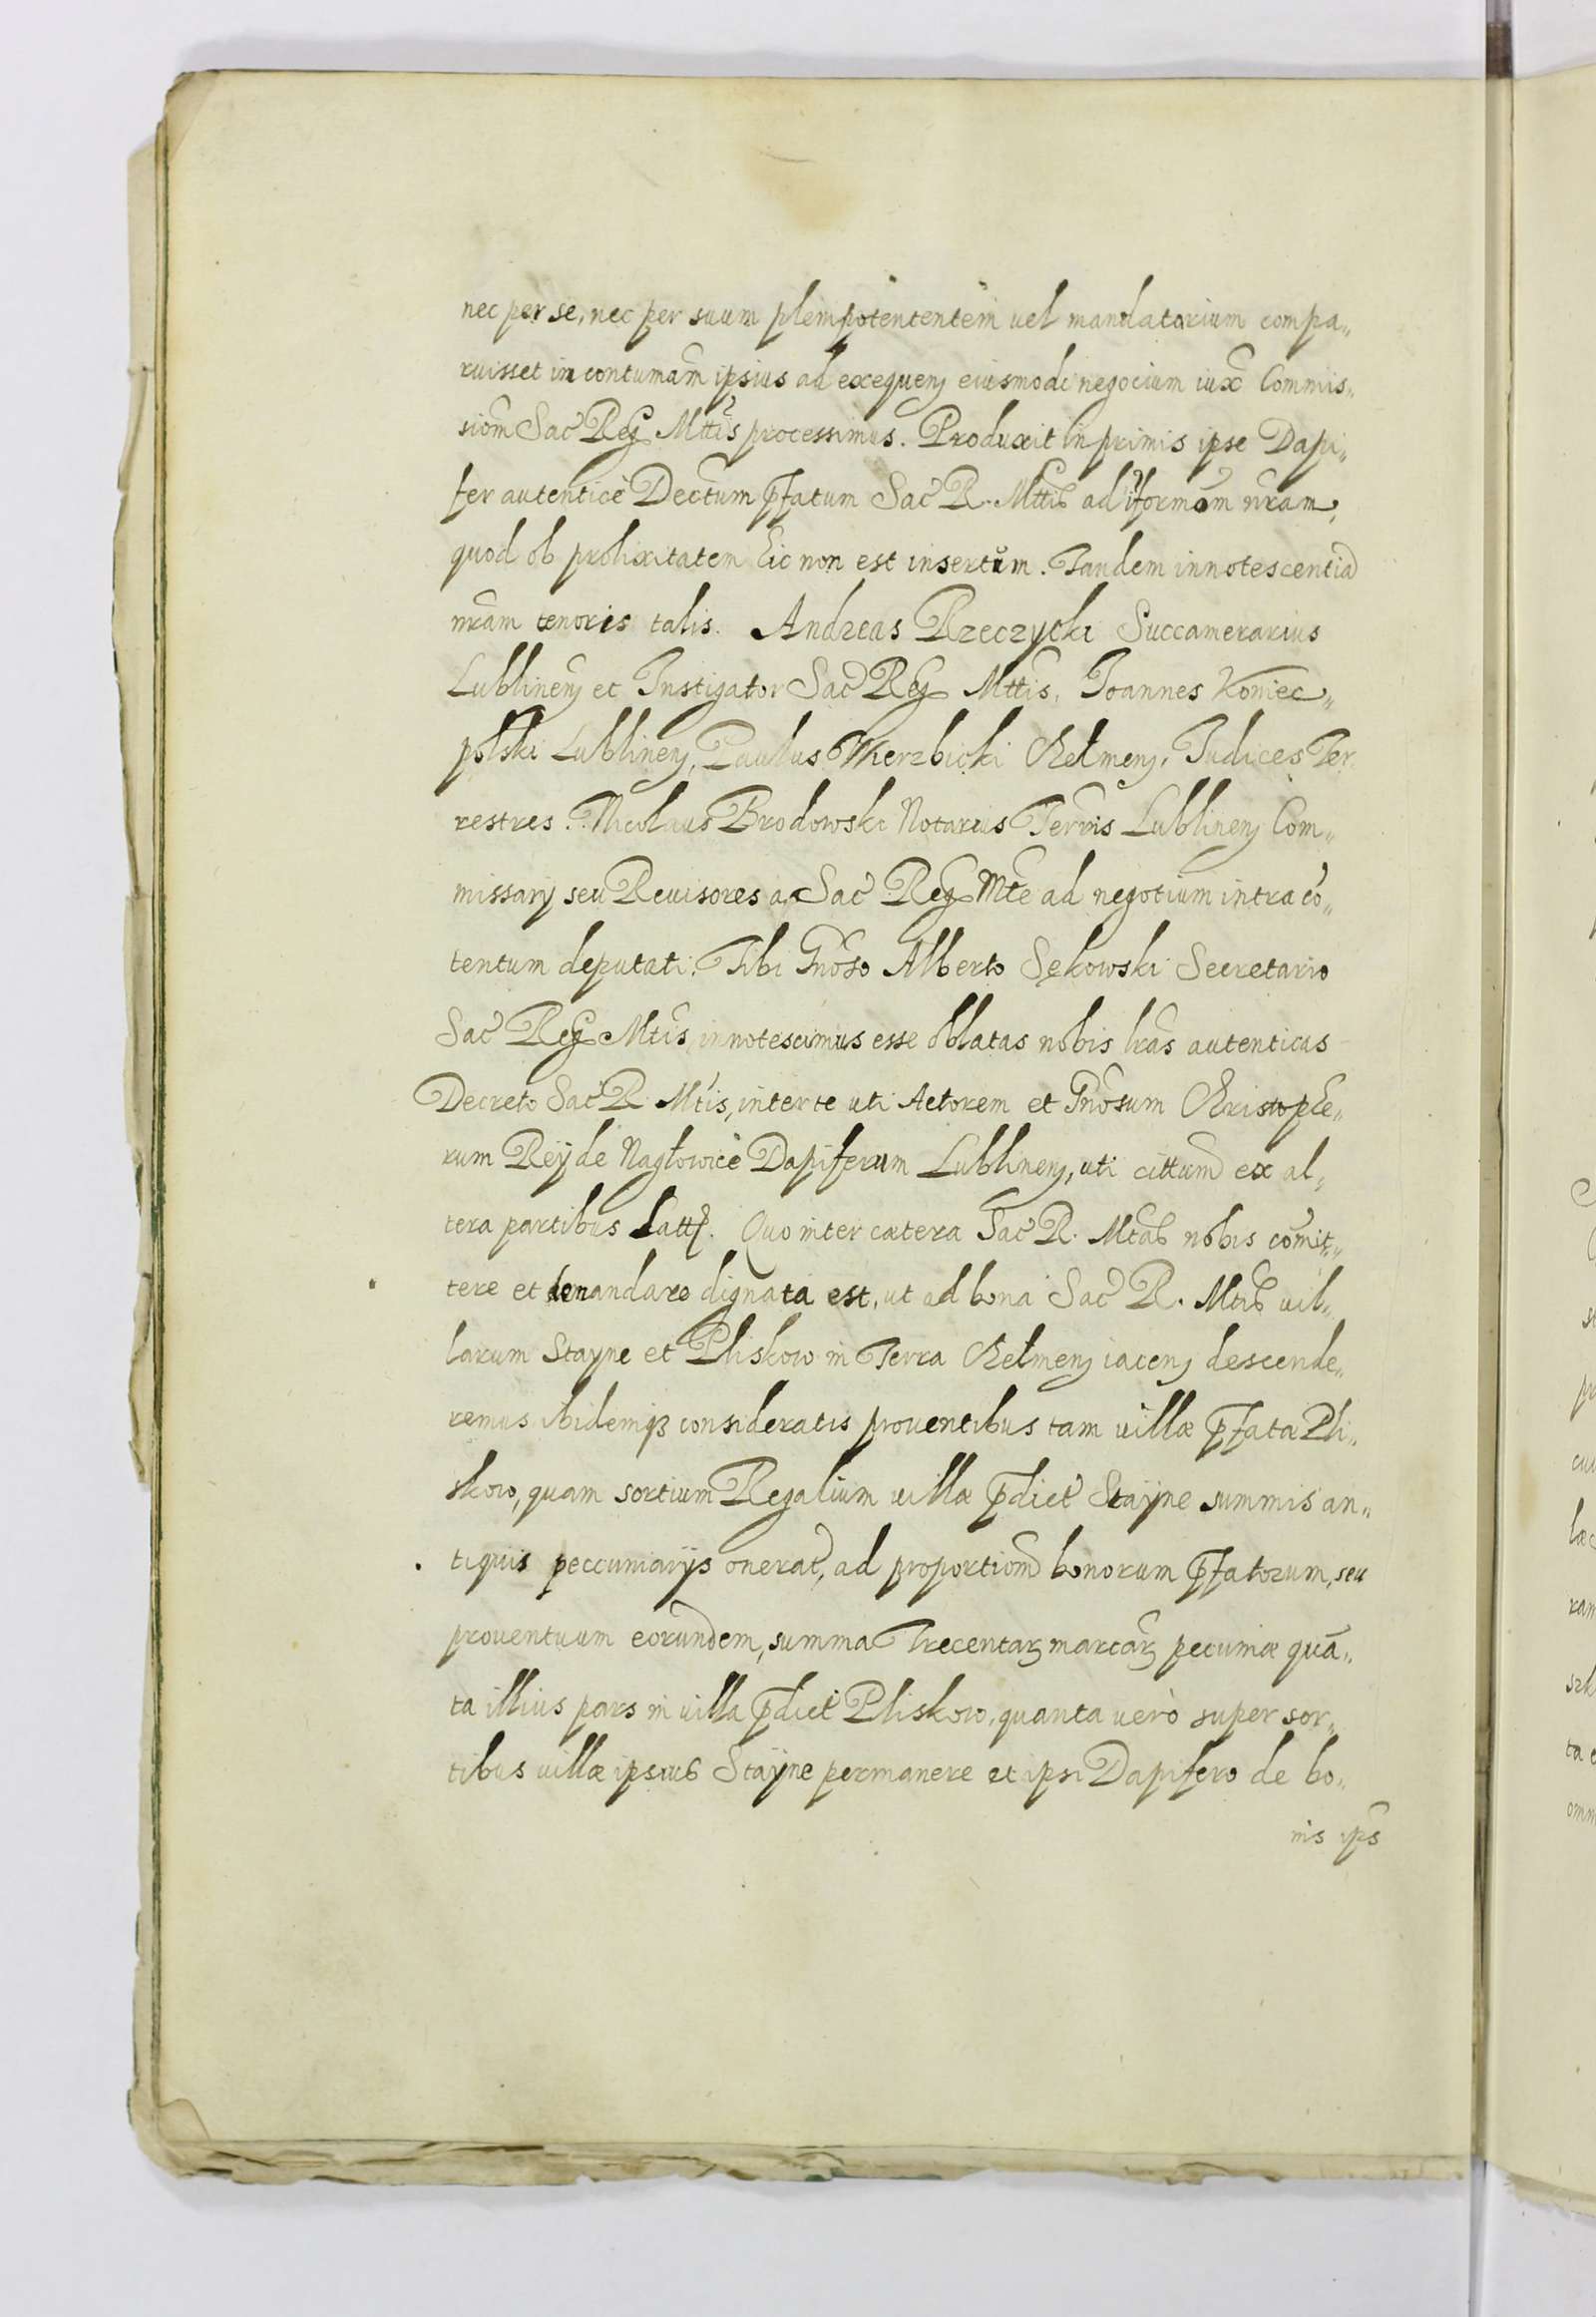 nec per se, nec per suum plenipotententem uel mandatarium compa„
ruisset in contumam̃ ipsius ad exequenȝ eiusmodi negocium iux̃ Commis„
siom̃ Sac̃ Reg̃ Mttis processimus. Produxit in primis ipse Dapi„
fer autenticè Dectum p̃fatum Sac̃ R. Mttis ad iformam̃ nr̃am,
quod ob prolixitatem hic non est insertŭm. Tandem innotescentiã
nr̃am tenoris talis. Andreas Rzeczycki Succamerarius
Lublinenȝ et Instigator Sac̃ Reg̃ Mttis, Joannes Koniec„
polski Lublinenȝ, Paulus Wierzbicki Chełmenȝ, Judices Ter
restres. Nicolaus Brodowski Notarius Terris Lublinenȝ Com„
missarij seu Reuisores a Sac̃ Reg̃ Mt̃e ad negotium intra cõ„
tentum deputati. Tibi Gñoso Alberto Sękowski Secretario
Sac̃ Reg̃ Mtĩs innotescimus esse oblatas nobis lr̃as autenticas
Decreto Sac̃ R. Mtĩs, inter te uti Actorem et Gñosum Christophe„
rum Reÿ de Nagłowicè Dapiferum Lublinenȝ, uti cittum̃ ex al„
tera partibus Latt. Quo inter cætera Sac̃ R. Mtas nobis com̃it„
tere et demandare dignata est, ut ad bona Sac̃ R. Mtis uil„
larum Stayne et Pliskow in Terra Chełmenȝ iacenȝ descende„
remus ibidemqȝ consideratis prouentibus tam uillæ p̃fata Pli„
skow, quam sortium Regalium uillæ p̃dict̃ Staÿne summis an„
tiquis peccuniarijs onerat̃, ad proportiom̃ bonorum p̃fatorum, seu
prouentuum eorundem, summa Trecentaȝ marcaȝ̃ pecuniæ quã„
ta illius pars in uilla p̃dict̃ Pliskow, quanta uerò super sor„
tibus uillæ ipsius Staÿne permanere et ipsi Dapifero de bo„
nis ips̃